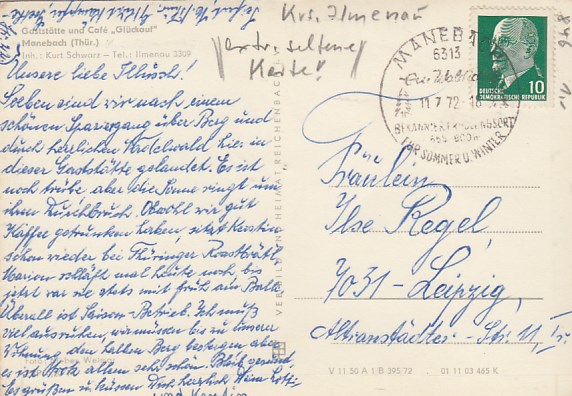 Krs. Ilmenau
extra seltene
Karte!
Gaststätte und Café „Glückauf"
Manebach (Thür.)
Inh.: Kurt Schwarz – Tel.: Ilmenau 3309
Unsere liebe
Soeben sind wir nach einem
schönen Spaziergang über Berg und
durch herrlichen Nadelwald hier in
dieser Gaststätte gelandet. Es ist
noch trübe aber die Sonne ringt um
ihren Durchbruch. Obwohl wir gut
Kaffee getrunken haben, sitzt Karstin
schon wieder bei Thüringer Rostbrätl.
Marion schläft mal heute noch, bis
jetzt war sie stets mit früh aus
Überall ist Saison-Betrieb. Ich muß
viel ausruhen, wir müssen bis zu unserer
Wohnung den halben Berg besteigen aber
es ist trotz allem sehr schön. Bleib gesund,
Es grüßen u. küssen Dich herzlich Deine Lotti
VERLAG BILD UND HEIMAT REICHENBACH
MANEBACH
6313
11.7.72
BEKANNTER ERHOLUNGSORT
FÜR SOMMER U. WINTER
10
DEUTSCHE
DEMOKRATISCHE REPUBLIK
Fräulein
Ilse Regel,
7031-Leipzig,
Altranstädter-Str. 11, I r.
V 11 50 A 1 B 395/72 01 11 03 465 K